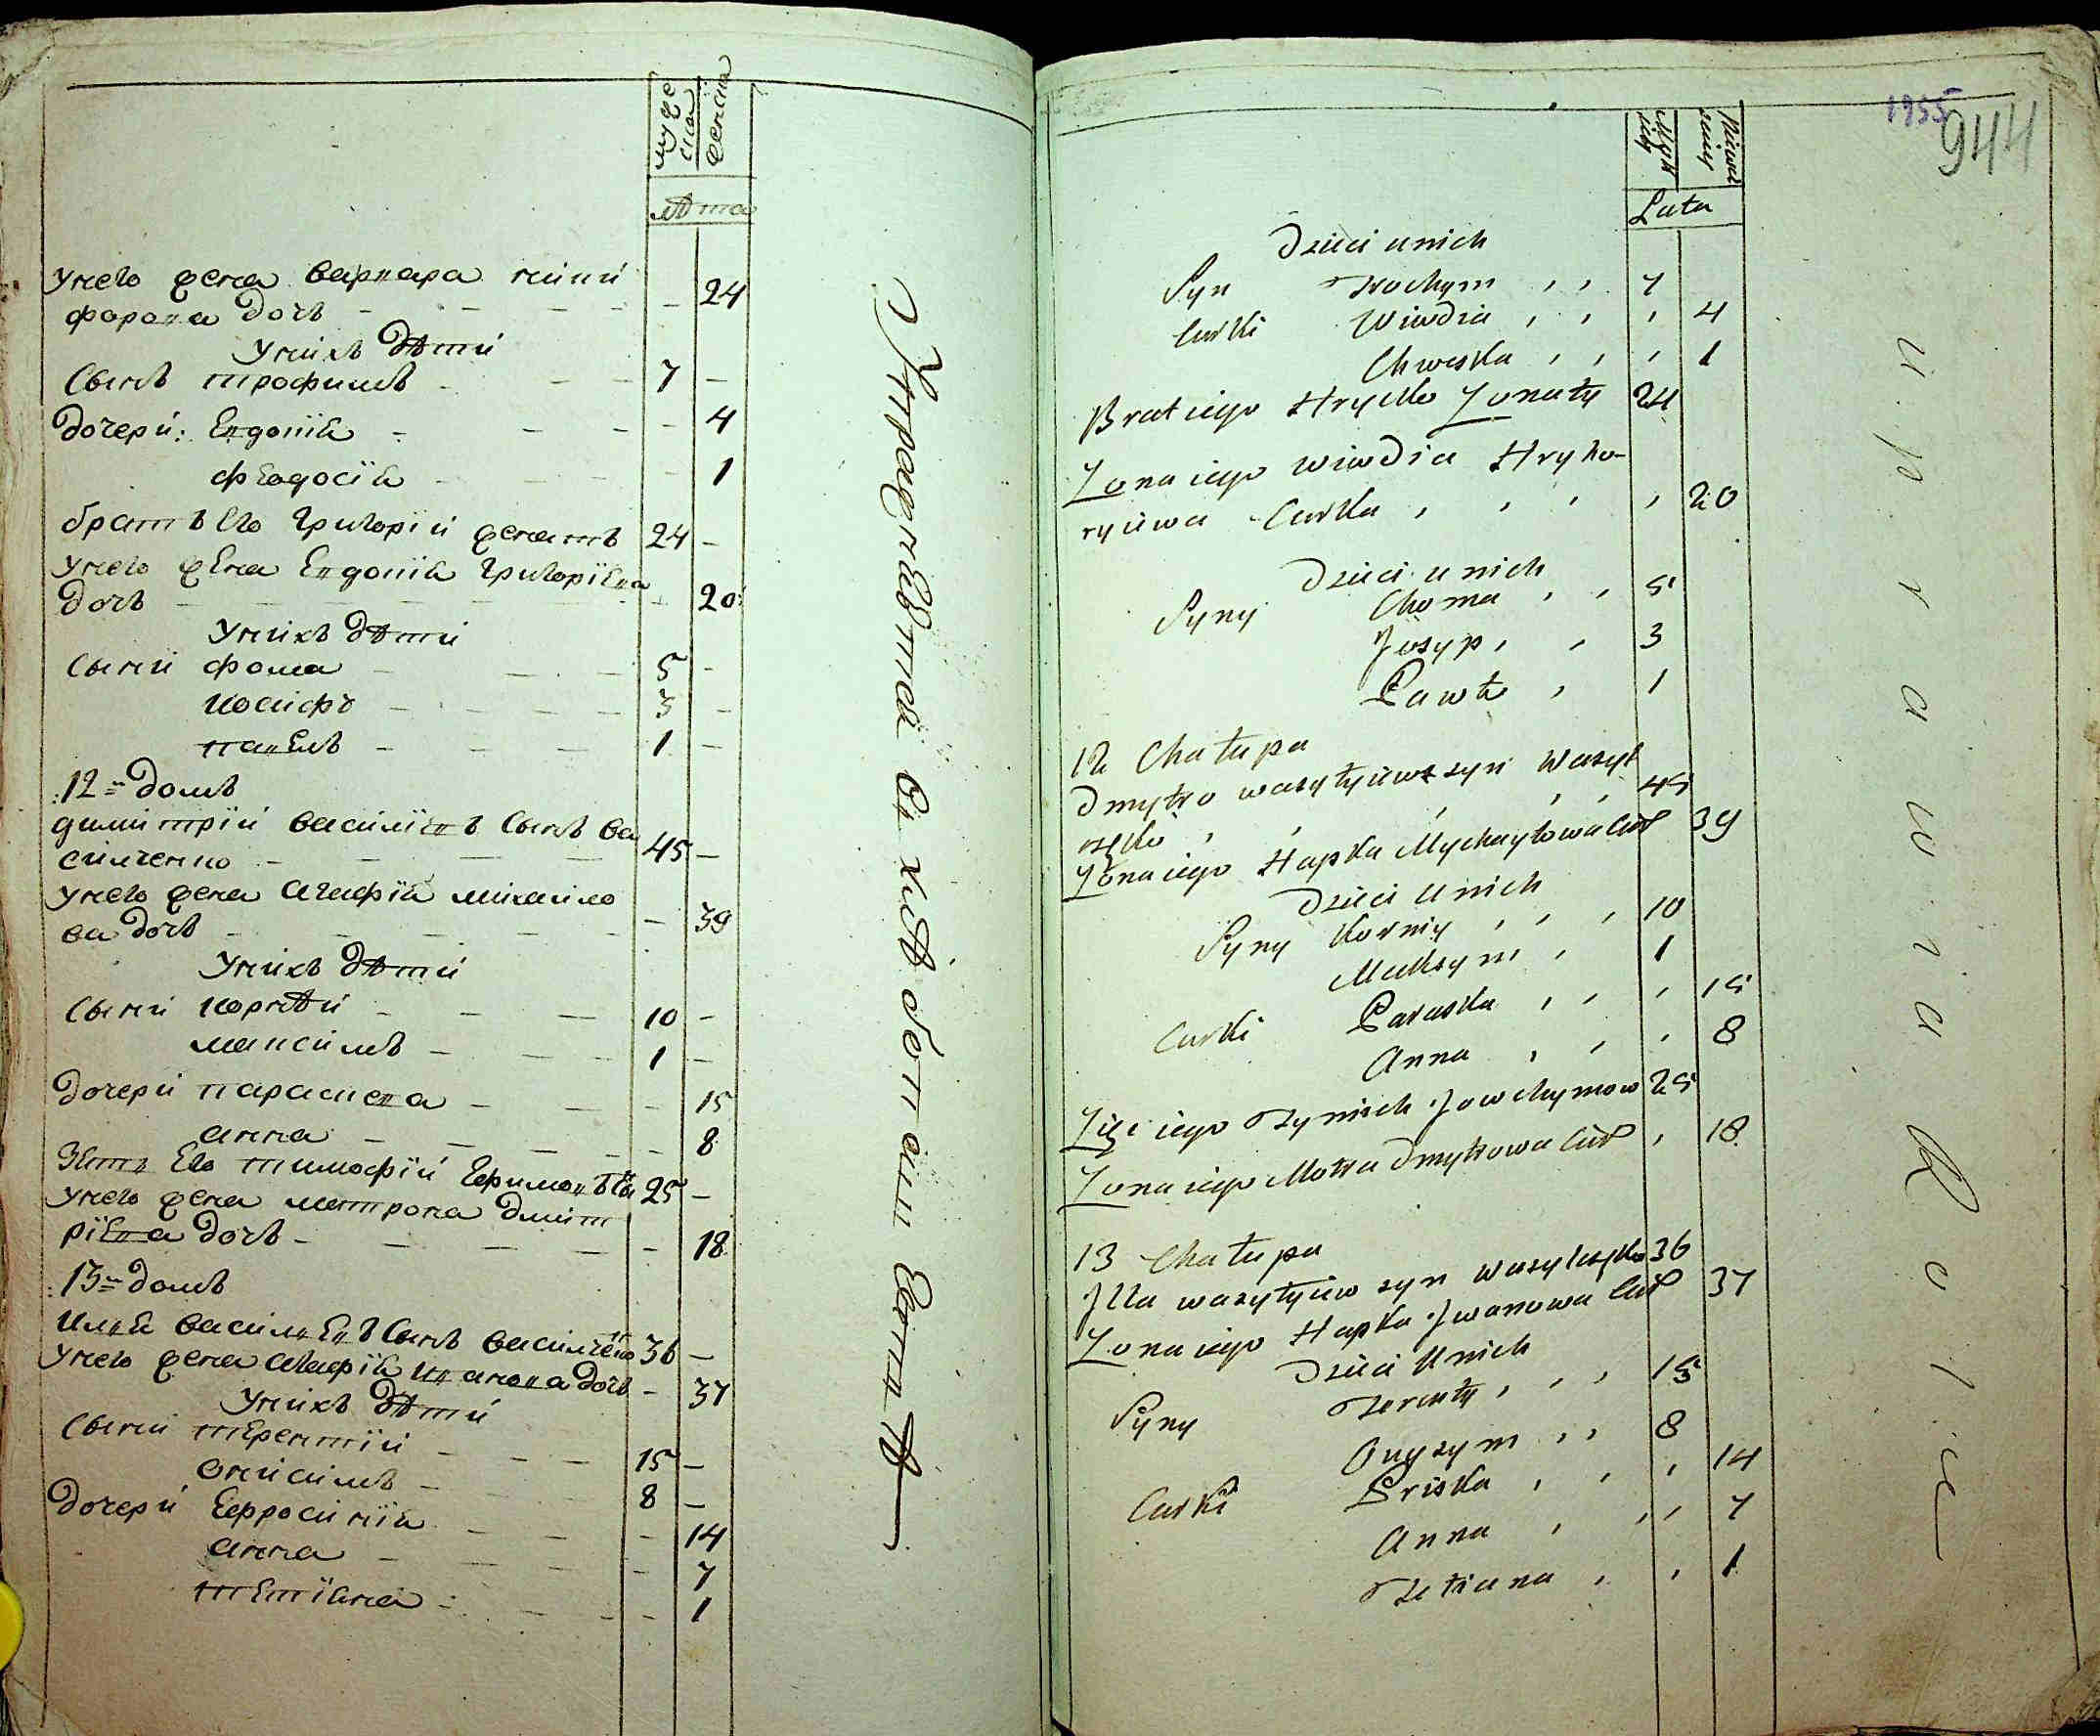 мужеска
женска
лѣта
Унего жена варвара ники
форова дочь - - - - 24
Унихъ дѣти
Сынъ трофимъ - - - 7 -
дочери: Евдокїя - - - - 4
феодосїя - - - - 1
братъ Его григорїй женатъ 24 -
Унего жена Евдокїя григорїева
дочь - - - - 20
Унихъ дѣти
Сыни фома - - - 5 -
иосифъ - - - - 3 -
павелъ - - - 1 -
12 домъ
димитрїй василїевъ Сынъ ва
силченко - - - - 45 -
Унего жена агафїя михайло
ва дочь - - - - 39
Унихъ дѣти
Сыни корнѣй - - - 10 -
максимъ - - - 1 -
дочери параскева - - - 15
анна - - - - 8
Зять Его тимофїй Ефимовъ 25 -
Унего жена матрона дмит
рїева дочь - - - - 18
13 домъ
илья васильевъ Сынъ василченко 36 -
Унего жена агафїя иванова дочь - 37
Унихъ дѣти
Сыни терентїй - - - 15 -
онисимъ - - - 8 -
дочери Ефросинїя - - - 14
анна - - - - 7
тетїяна - - - - 1
Управленїя въ хлѣбопашествѣ
1955
944
Męzkiey
Niewiesciey
Lata
Dzieci u nich
Syn Trochym , , 7
Curki Wiwdia , , , 4
Chweska , , , 1
Brat iego Hrycko Zonaty 24
Zona iego Wiwdia Hryho-
ryiewa Curka , , , , 20
Dzieci u nich
Syny Choma , , 5
Josyp , , 3
Pawło , 1
12 Chałupa
Dmytro wasyłyiew syn Wasyl
częko , , , , , 45
Zona iego Hapka Mychayłowa Cur 39
Dzieci u nich
Syny Korniy , , , 10
Maksym , 1
Curki Paraska , , , 15
Anna , , , 8
Zięć iego Tymisch Jowchymow 25
Zona iego Motra Dmytrowa Cur , 18
13 Chałupa
Illa wasyłyiew syn Wasylczęko 36
Zona iego Hapka Jwanowa Cur 37
Dzieci u nich
Syny Terenty , , , 15
Onyzym , , 8
Curki Priska , , , 14
Anna , , , 7
Tetiana , , 1
uprawna Role